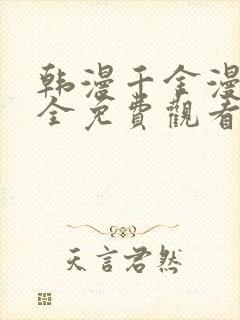 韩漫千金漫
全免費觀看
天言君然